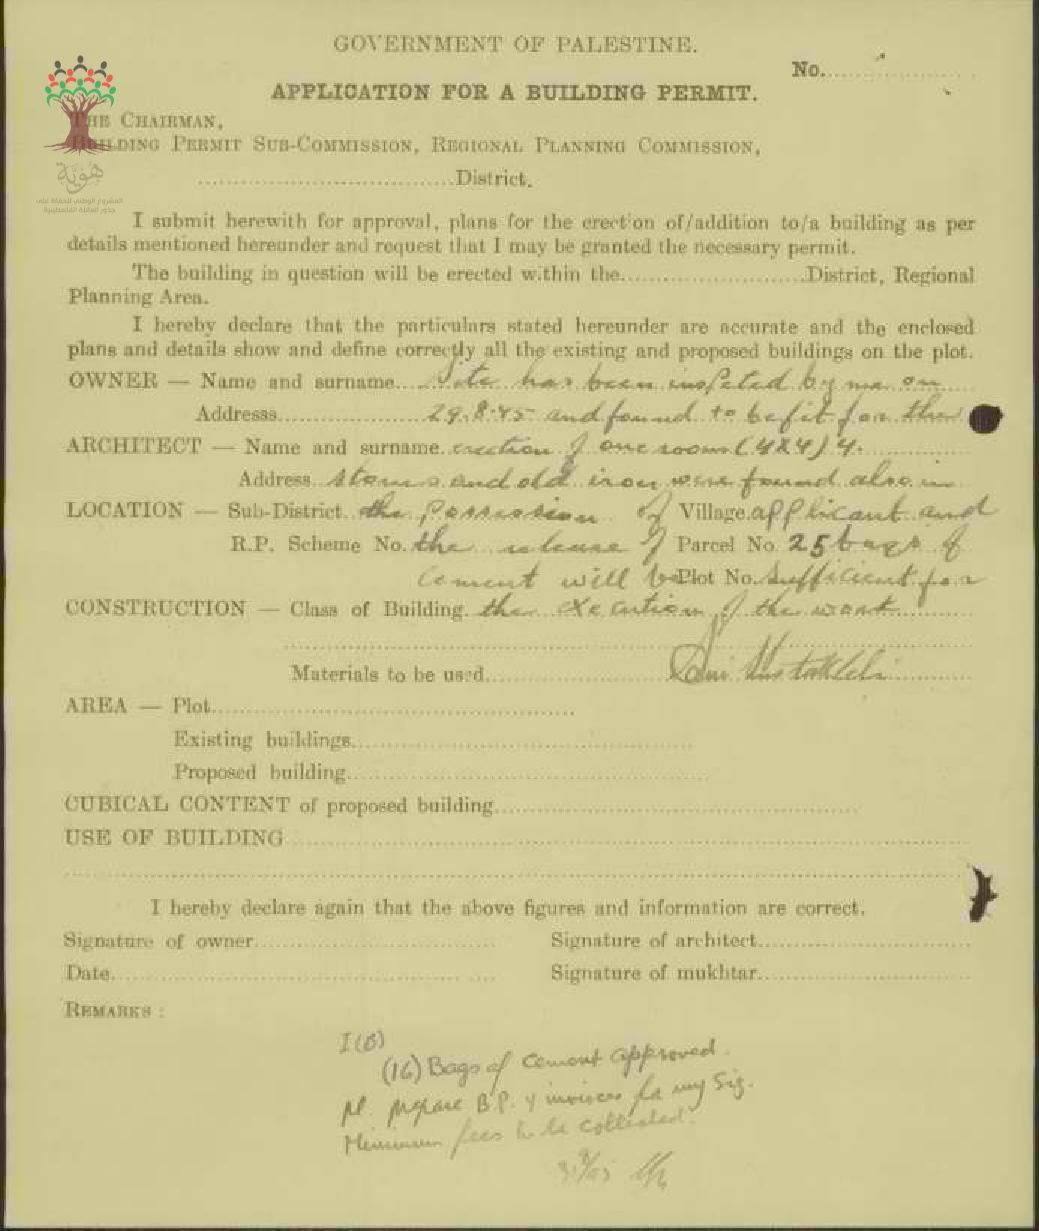 GOVERNMENT OF PALESTINE.
No.
APPLICATION FOR A BUILDING PERMIT.
THE CHAIRMAN,
BUILDING PERMIT SUB-COMMISSION, REGIONAL PLANNING COMMISSION,
District.
هوية
I submit herewith for approval, plans for the erection of/addition to/a building as per
details mentioned hereunder and request that I may be granted the necessary permit.
The building in question will be erected within the District, Regional
Planning Area.
I hereby declare that the particulars stated hereunder are accurate and the enclosed
plans and details show and define correctly all the existing and proposed buildings on the plot.
OWNER — Name and surname Site has been inspeted by me on
Addresss 29.8.45 and found to be fit for the
ARCHITECT — Name and surname erection of one room (4X4) 4.
Address stones and old iron were found also in
LOCATION — Sub-District the possession of Village applicant and
R.P. Scheme No. the release of Parcel No. 25 bags of
cement will be Plot No. sufficient for
CONSTRUCTION — Class of Building the execution of the work
Materials to be used
AREA — Plot
Existing buildings
Proposed building
CUBICAL CONTENT of proposed building
USE OF BUILDING
I hereby declare again that the above figures and information are correct.
Signature of owner Signature of architect
Date Signature of mukhtar
REMARKS :
I(B)
(16) Bags of Cement approved.
pl. prepare B.P. & invoices for my Sig.
Minimum fees to be collected.